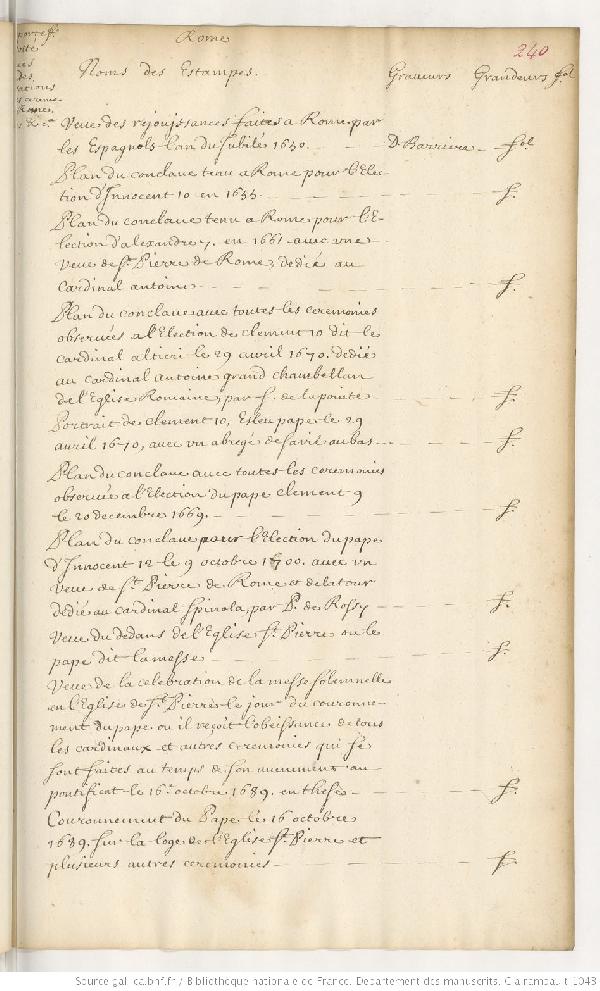 Rome
240
Noms des Estampes. Graveurs Grandeurs fol
Veue des rejouissances faites a Rome par
les Espagnols lan du Jubilé 1650. D Barriere fol
Plan du conclave tenu a Rome pour l'Elec-
tion d'Innocent 10 en 1655 f.
Plan du conclave tenu a Rome pour l'E-
lection d'alexandre 7. en 1661 avec une
Veue de St. Pierre de Rome, dedié au
Cardinal antoine f.
Plan du conclave avec toutes les ceremonies
observées a l'Election de clement 10 dit le
cardinal altieri le 29 avril 1670. dedié
au cardinal antoine grand chambellan
de l'Eglise Romaine, par f. de lapointe f.
Portrait de clement 10, Esleu pape le 29
avril 1670, avec un abregé de sa vie au bas f.
Plan du conclave avec toutes les ceremonies
observée a l'Election du pape clement 9
le 20 decembre 1669. f.
Plan du conclave pour l'Election du pape
d'Innocent 12 le 9 octobre 1700. avec un
Veue de St. Pierre de Rome et de la tour
dedié au cardinal Spinola, par P. de Rossy f.
Veue du dedans de l'Eglise St. Pierre ou le
pape dit la messe f.
Veue de la celebration de la messe solemnelle
en l'Eglise de St. Pierre le jour du couronne-
ment du pape ou il reçoit l'obeissance de tous
les cardinaux et autres ceremonies qui se
sont faites au temps de son avenement au
pontificat le 16e octobre 1689. en these f.
Couronnement du Pape le 16 octobre
1689. sur la loge de l'Eglise St. Pierre et
plusieurs autres ceremonies f.
Source gallica.bnf.fr / Bibliothèque nationale de France. Département des manuscrits. Clairambault 1043